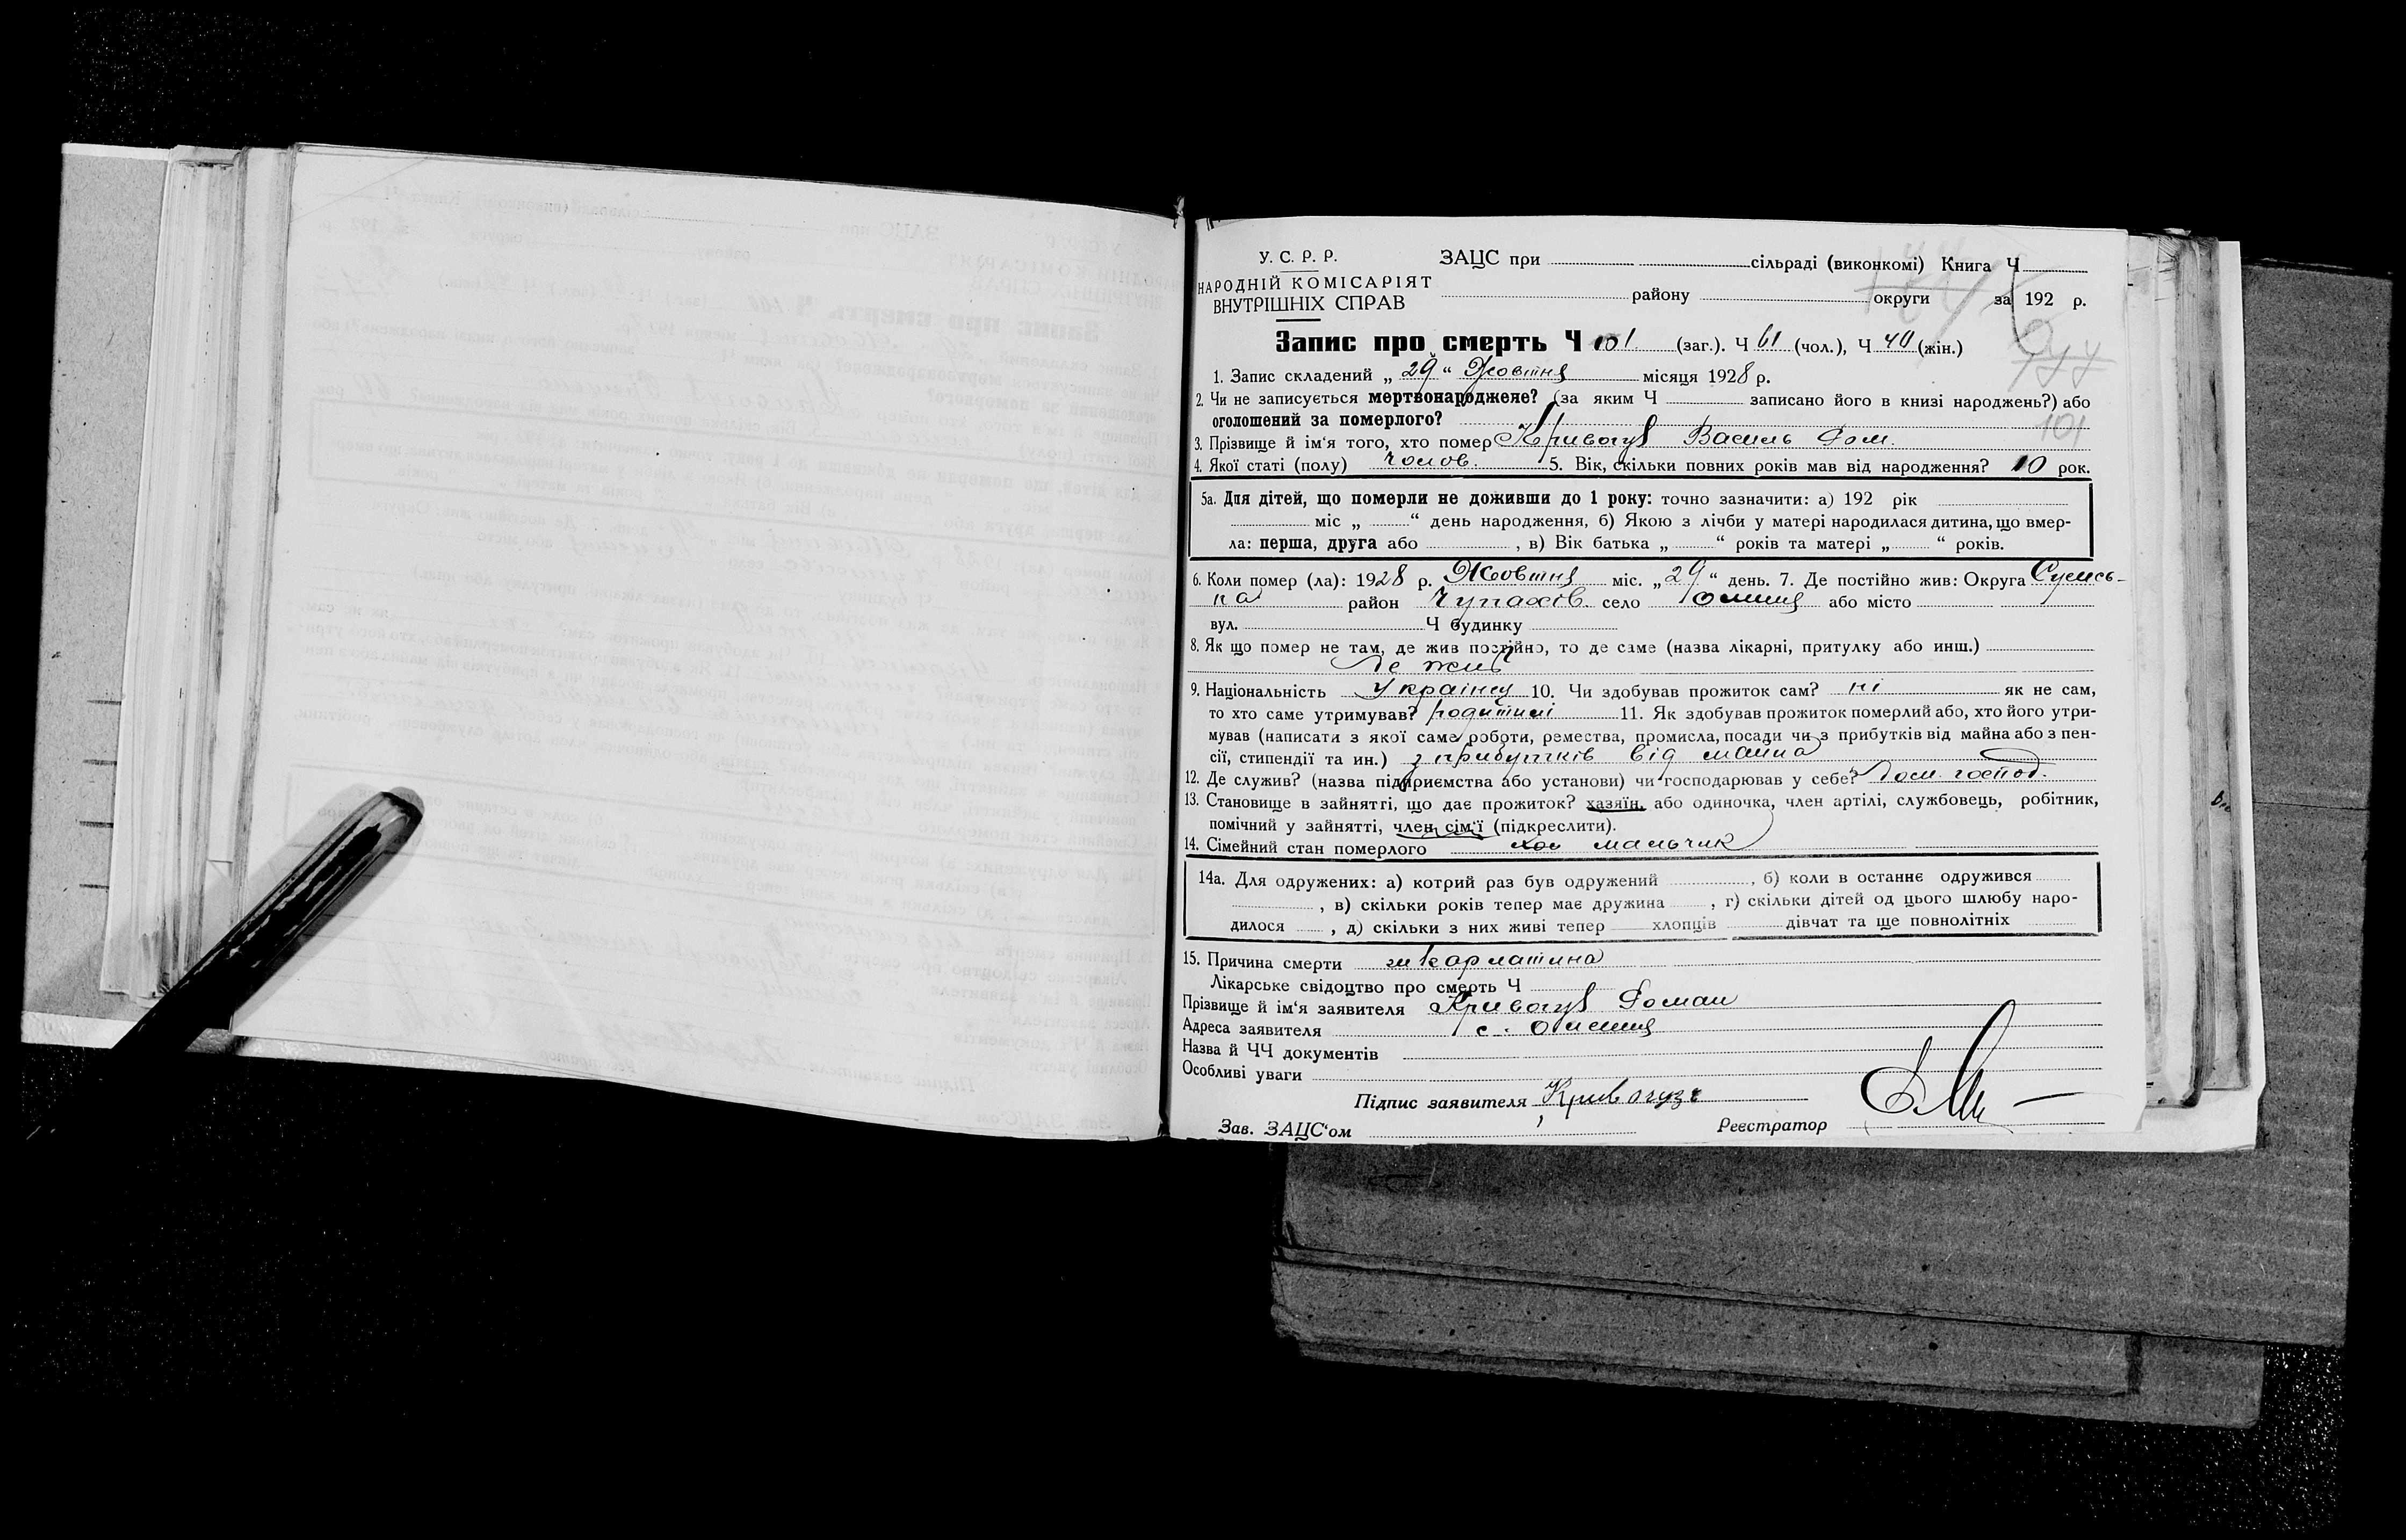 У. С. Р. Р.
НАРОДНІЙ КОМІСАРІЯТ
ВНУТРІШНІХ СПРАВ
ЗАЦС при сільраді (виконкомі) Книга Ч
району округи за 192 р.
Запис про смерть Ч 101 (заг.). Ч 61 (чол.), Ч 40 (жін.)
101
1. Запис складений „ 29 “ Жовтня місяця 1928 р.
2. Чи не записується мертвонароджене? (за яким Ч записано його в книзі народжень?) або
оголошений за померлого?
3. Прізвище й ім‘я того, хто помер Кривогуз Василь Ром.
4. Якої статі (полу) чолов. 5. Вік, скільки повних років мав від народження? 10 рок.
5а. Для дітей, що померли не доживши до 1 року: точно зазначити: а) 192 рік
міс „ “ день народження, б) Якою з лічби у матері народилася дитина, що вмер-
ла: перша, друга або , в) Вік батька „ “ років та матері „ “ років.
6. Коли помер (ла): 1928 р. Жовтня міс. „29“ день. 7. Де постійно жив: Округа Сумсь-
ка район Чупахів. село або місто
вул. Ч будинку
8. Як що помер не там, де жив постійно, то де саме (назва лікарні, притулку або инш.)
де жив
9. Національність Українец 10. Чи здобував прожиток сам? ні як не сам,
то хто саме утримував? родители 11. Як здобував прожиток померлий або, хто його утри-
мував (написати з якої саме роботи, ремества, промисла, посади чи з прибутків від майна або з пен-
сії, стипендії та ин.) з прибутків від майна
12. Де служив? (назва підприємства або установи) чи господарював у себе? Дом. господ.
13. Становище в зайнятті, що дає прожиток? хазяїн, або одиночка, член артілі, службовець, робітник,
помічний у зайнятті, член сім‘ї (підкреслити).
14. Сімейний стан померлого мальчик
14а. Для одружених: а) котрий раз був одружений , б) коли в останнє одружився
, в) скільки років тепер має дружина , г) скільки дітей од цього шлюбу наро-
дилося , д) скільки з них живі тепер хлопців дівчат та ще повнолітніх
15. Причина смерти шкарлатина
Лікарське свідоцтво про смерть Ч
Прізвище й ім‘я заявителя Кривогуз Роман
Адреса заявителя с.
Назва й ЧЧ документів
Особливі уваги
Підпис заявителя Кривогуз
Зав. ЗАЦС‘ом Реєстратор